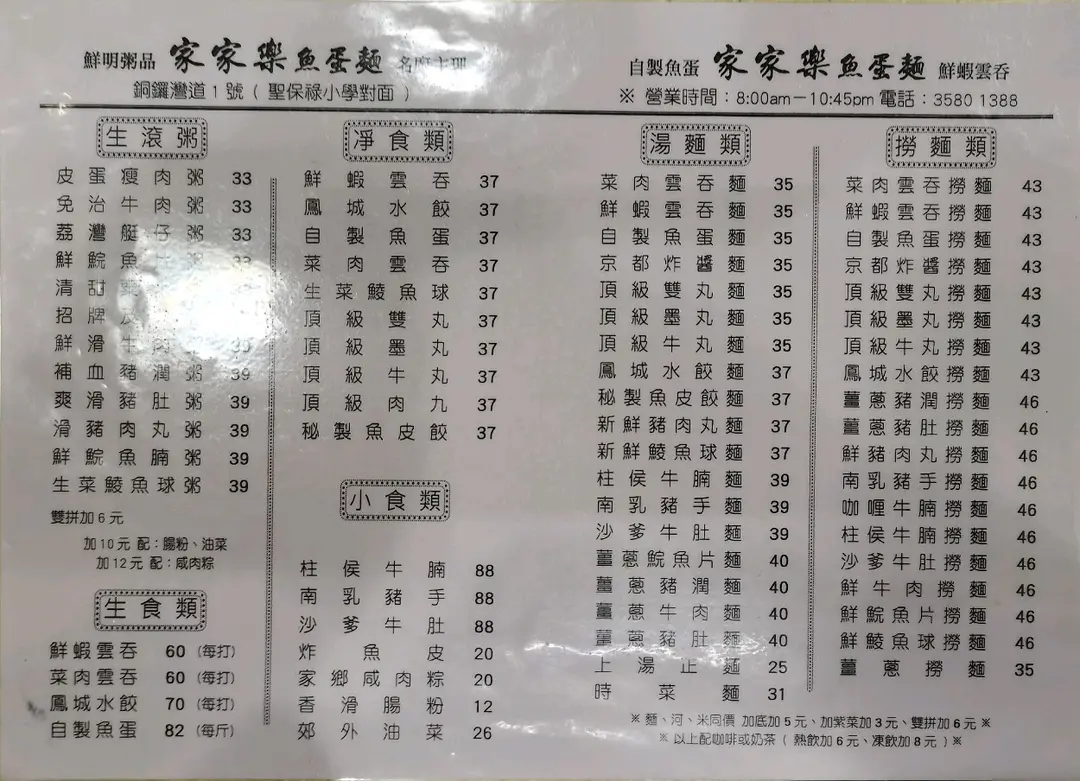 鮮明粥品 家家樂魚蛋麵 名廚主理
銅鑼灣道1號(聖保祿小學對面)
自製魚蛋 家家樂魚蛋麵 鮮蝦雲吞
※ 營業時間:8:00am－10:45pm 電話:3580 1388
生滾粥
皮蛋瘦肉粥 33
免治牛肉粥 33
荔灣艇仔粥 33
鮮鯇魚片粥 33
清甜
招牌
鮮滑牛肉粥 39
補血豬潤粥 39
爽滑豬肚粥 39
滑豬肉丸粥 39
鮮鯇魚腩粥 39
生菜鯪魚球粥 39
雙拼加6元
加10元 配:腸粉、油菜
加12元 配:咸肉粽
生食類
鮮蝦雲吞 60 (每打)
菜肉雲吞 60 (每打)
鳳城水餃 70 (每打)
自製魚蛋 82 (每斤)
凈食類
鮮蝦雲吞 37
鳳城水餃 37
自製魚蛋 37
菜肉雲吞 37
生菜鯪魚球 37
頂級雙丸 37
頂級墨丸 37
頂級牛丸 37
頂級肉九 37
秘製魚皮餃 37
小食類
柱侯牛腩 88
南乳豬手 88
沙爹牛肚 88
炸魚皮 20
家鄉咸肉粽 20
香滑腸粉 12
郊外油菜 26
湯麵類
菜肉雲吞麵 35
鮮蝦雲吞麵 35
自製魚蛋麵 35
京都炸醬麵 35
頂級雙丸麵 35
頂級墨丸麵 35
頂級牛丸麵 35
鳳城水餃麵 37
秘製魚皮餃麵 37
新鮮豬肉丸麵 37
新鮮鯪魚球麵 37
柱侯牛腩麵 39
南乳豬手麵 39
沙爹牛肚麵 39
薑蔥鯇魚片麵 40
薑蔥豬潤麵 40
薑蔥牛肉麵 40
薑蔥豬肚麵 40
上湯正麵 25
時菜麵 31
撈麵類
菜肉雲吞撈麵 43
鮮蝦雲吞撈麵 43
自製魚蛋撈麵 43
京都炸醬撈麵 43
頂級雙丸撈麵 43
頂級墨丸撈麵 43
頂級牛丸撈麵 43
鳳城水餃撈麵 43
薑蔥豬潤撈麵 46
薑蔥豬肚撈麵 46
鮮豬肉丸撈麵 46
南乳豬手撈麵 46
咖喱牛腩撈麵 46
柱侯牛腩撈麵 46
沙爹牛肚撈麵 46
鮮牛肉撈麵 46
鮮鯇魚片撈麵 46
鮮鯪魚球撈麵 46
薑蔥撈麵 35
※ 麵、河、米同價 加底加5元、加紫菜加3元、雙拼加6元 ※
※ 以上配咖啡或奶茶(熱飲加6元、凍飲加8元)※